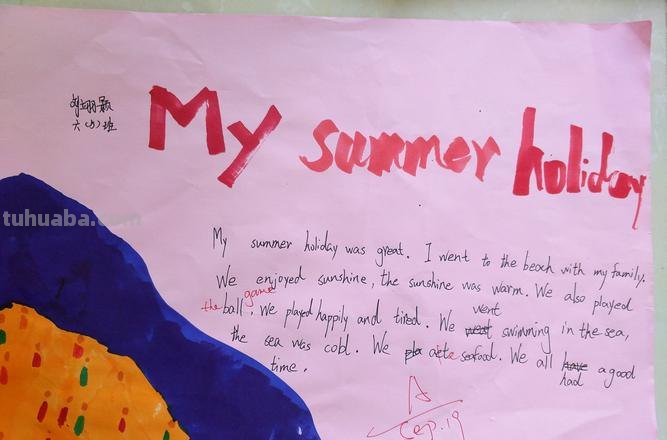 My summer holiday
六(5)班
tuhuaba.com
My summer holiday was great. I went to the beach with my family.
We enjoyed sunshine, the sunshine was warm. We also played
the ball game. We played happily and tired. We went swimming in the sea,
the sea was cold. We ate seafood. We all had a good
time.
A
Sep.19